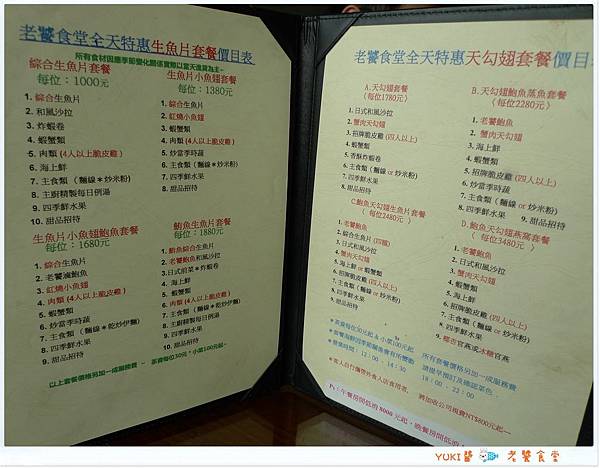 老饕食堂全天特惠生魚片套餐價目表
所有食材因應季節變化關係實際以當天進貨為主~
綜合生魚片套餐
每位：1000元
1. 綜合生魚片
2. 和風沙拉
3. 炸蝦卷
4. 蝦蟹類
5. 肉類 (4人以上脆皮雞)
6. 海上鮮
7. 主食類（麵線＊炒米粉）
8. 主廚精製每日例湯
9. 四季鮮水果
10. 甜品招待
生魚片小魚翅套餐
每位：1380元
1. 綜合生魚片
2. 紅燒小魚翅
3. 蝦蟹類
4. 肉類 (4人以上脆皮雞)
5. 炒當季時蔬
6. 主食類（麵線＊炒米粉）
7. 四季鮮水果
8. 甜品招待
生魚片小魚翅鮑魚套餐
每位：1680元
1. 綜合生魚片
2. 老饕滷鮑魚
3. 紅燒小魚翅
4. 肉類 (4人以上脆皮雞)
5. 蝦蟹類
6. 炒當季時蔬
7. 主食類（麵線＊乾炒伊麵）
8. 四季鮮水果
9. 甜品招待
鮪魚生魚片套餐
每位：1880元
1. 鮪魚綜合生魚片
2. 老饕鮑魚和風沙拉
3.日式前菜＊炸蝦卷
4. 海上鮮
5. 蝦蟹類
6. 肉類 (4人以上脆皮雞)
7. 主食類（麵線＊乾炒伊麵）
8. 主廚精製每日例湯
9. 四季鮮水果
10. 甜品招待
以上套餐價格另加一成服務費 ~ 茶資每位30元。小菜100元起~
老饕食堂全天特惠天勾翅套餐價目表
A.天勾翅套餐
(每位1780元)
1. 日式和風沙拉
2. 蟹肉天勾翅
3. 招牌脆皮雞 (四人以上)
4. 蝦蟹類
5. 香酥炸蝦卷
6. 主食類（麵線 or 炒米粉)
7. 四季鮮水果
8. 甜品招待
B. 天勾翅鮑魚蒸魚套餐
(每位2280元)
1. 老饕鮑魚
2. 蟹肉天勾翅
3. 海上鮮
4. 蝦蟹類
5. 招牌脆皮雞 (四人以上)
6. 炒當季時蔬
7. 主食類（麵線 or 炒米粉)
8. 四季鮮水果 9. 甜品招待
C.鮑魚天勾翅生魚片套餐
(每位2480元 )
1. 老饕鮑魚
2. 綜合生魚片 (四種)
3. 日式和風沙拉
4. 蟹肉天勾翅
5. 海上鮮 or 蝦蟹類
6. 招牌脆皮雞 (四人以上)
7. 主食類（麵線 or 炒米粉)
8. 四季鮮水果
9. 甜品招待
D. 鮑魚天勾翅燕窩套餐
( 每位3480元 )
1. 老饕鮑魚
2. 日式和風沙拉
3. 蟹肉天勾翅
4. 蝦蟹類
5. 海上鮮
6. 招牌脆皮雞 (四人以上)
7. 主食類（麵線 or 炒米粉)
8. 四季鮮水果
9. 椰杏官燕or冰糖官燕
＊茶資每位30元起＆小菜100元起
＊套餐海鮮因季節關係會有所變動
＊營業時間：12：00 - 14：30
所有套餐價格另加一成服務費
請提早預訂及確認菜色
18：00 - 22：00
＊客人自行攜帶外食入店食用者，將加收公司規費NT$800元起~
Ps：午餐房間低消 8000 元起，晚餐房間低消
YUKI醬 老饕食堂